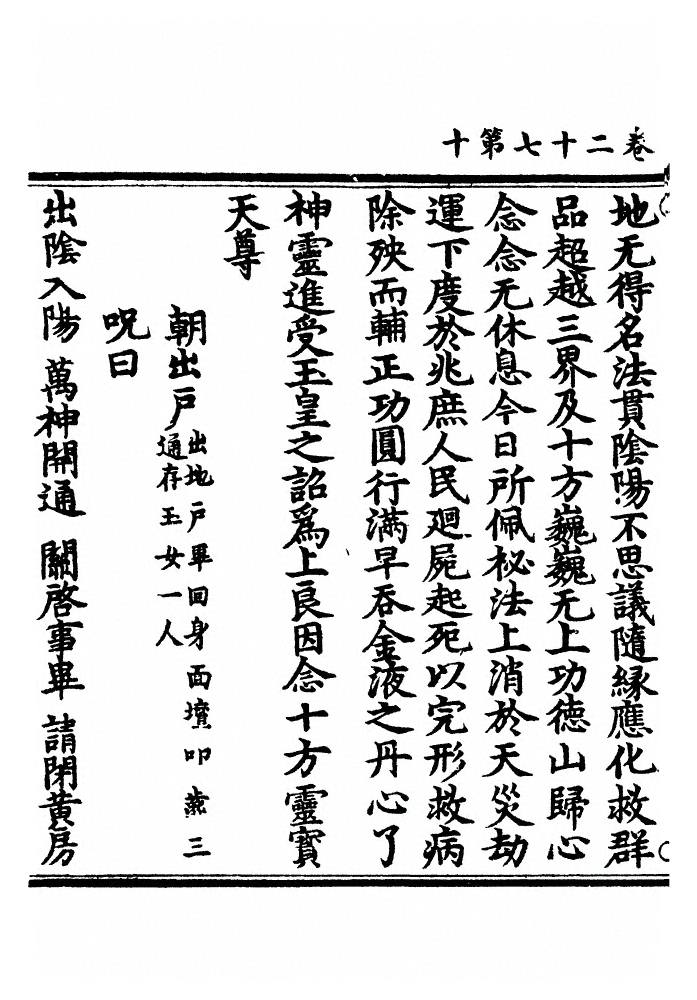 卷二十七第十
地无得名法貫陰陽不思議隨縁應化救群
品超越三界及十方巍巍无上功德山歸心
念念无休息今日所佩秘法上消於天災劫
運下度於兆庶人民廻屍起死以完形救病
除殃而輔正功圓行滿早吞金液之丹心了
神靈進受玉皇之詔爲上良因念十方靈寶
天尊
朝出戸出地戸畢回身面壇叩齒三
通存玉女一人
呪曰
出陰入陽 萬神開通 關啓事畢 請閉黃房